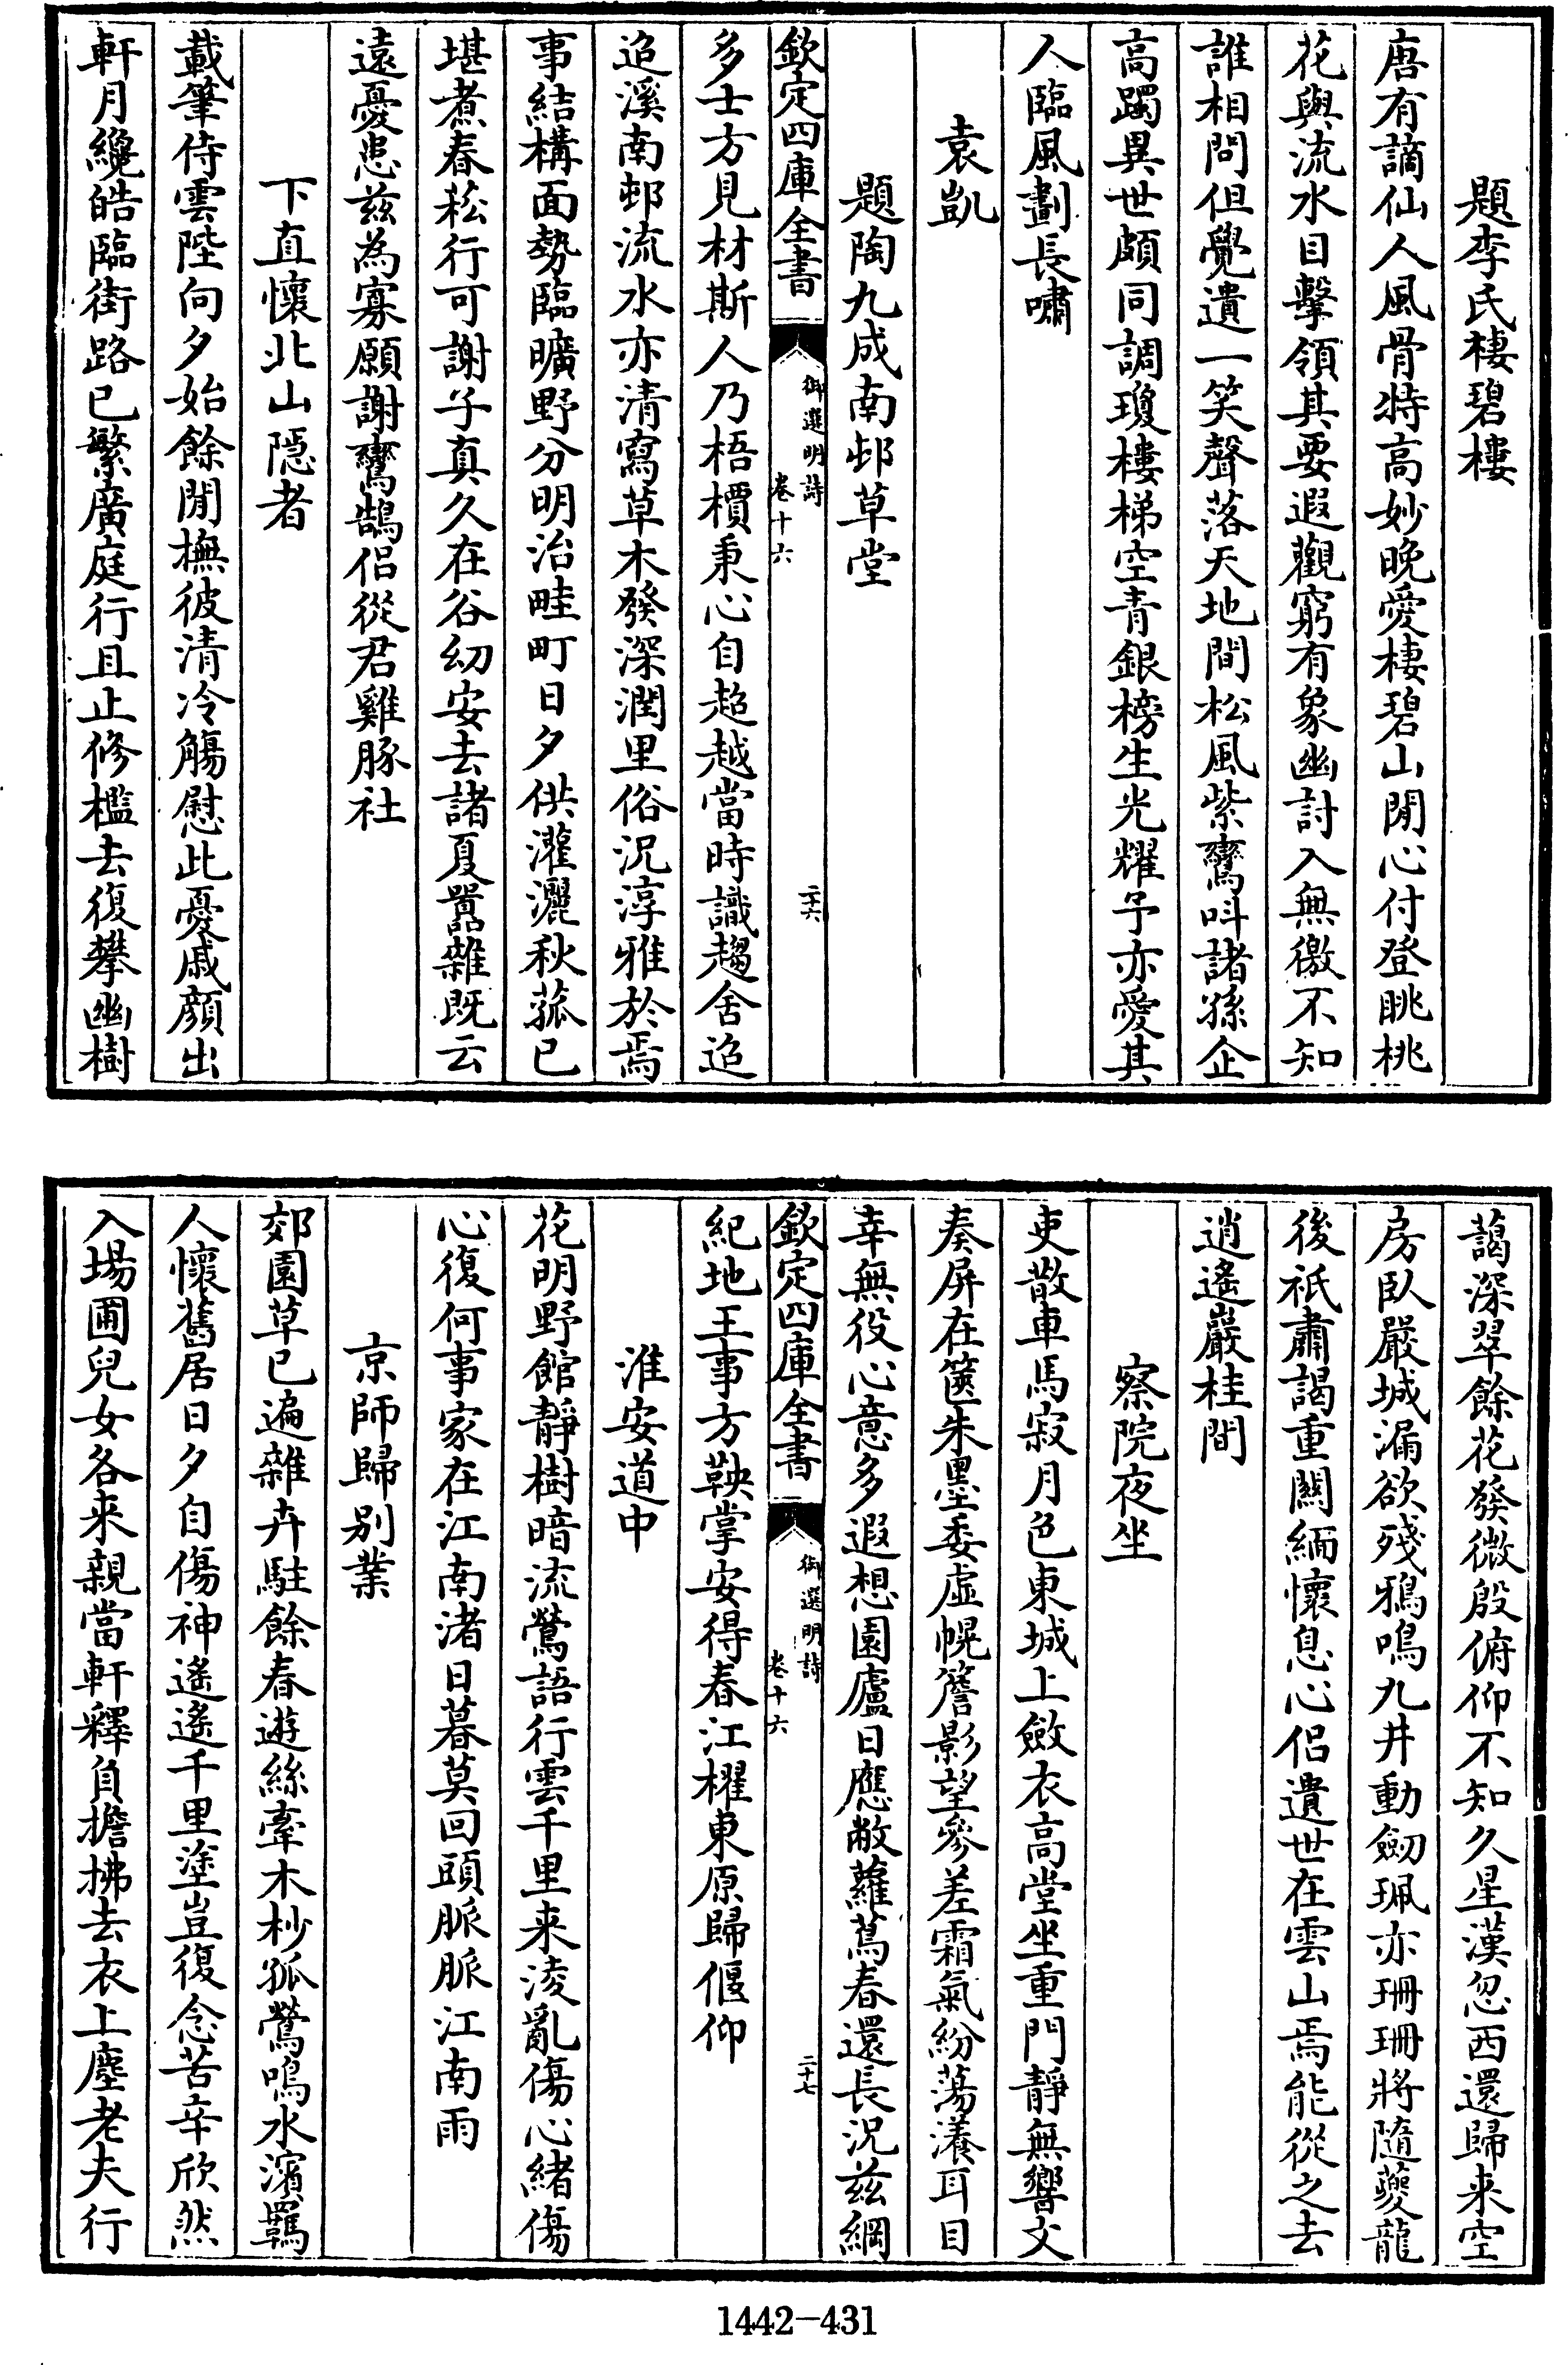 題李氏棲碧樓
唐有謫仙人風骨特高妙晚愛棲碧山閒心付登眺桃
花與流水目擊領其要遐觀窮有象幽討入無徼不知
誰相問但覺遺一笑聲落天地間松風紫鸞呌諸孫企
高躅異世頗同調瓊樓梯空青銀榜生光耀予亦愛其
人臨風劃長嘯
袁凱
題陶九成南邨草堂
欽定四庫全書
御選明詩
卷十六
二十六
多士方見材斯人乃梧檟秉心自超越當時識趨舍迨
追溪南邨流水亦清寫草木發深潤里俗況淳雅於焉
事結構面勢臨曠野分明治畦町日夕供灌灑秋菰已
堪煮春菘行可謝子真久在谷幼安去諸夏嚣雜既云
遠憂患茲為寡願謝鸞鵠侶從君雞豚社
下直懷北山隠者
載筆侍雲陛向夕始餘閒撫彼清冷觴慰此憂戚顔出
軒月纔皓臨街路已繁廣庭行且止修檻去復攀幽樹
藹深翠餘花發微殷俯仰不知久星漢忽西還歸来空
房臥嚴城漏欲殘鴉鳴九井動劒珮亦珊珊將隨夔龍
後祇肅謁重關緬懷息心侶遺世在雲山焉能從之去
逍遙巖桂間
察院夜坐
吏散車馬寂月色東城上斂衣高堂坐重門靜無響文
奏屏在篋朱墨委虛幌簷影望參差霜氣紛蕩瀁耳目
幸無役心意多遐想園廬日應敝蘿蔦春還長況茲綱
欽定四庫全書
御選明詩
卷十六
二十七
紀地王事方鞅掌安得春江櫂東原歸偃仰
淮安道中
花明野館靜樹暗流鶯語行雲千里来淩亂傷心緒傷
心復何事家在江南渚日暮莫回頭脈脈江南雨
京師歸别業
郊園草已遍雜卉駐餘春遊絲牽木杪狐鶯鳴水濱羈
人懷舊居日夕自傷神遙遙千里塗豈復念苦辛欣然
入場圃兒女各来親當軒釋負擔拂去衣上塵老夫行
1442-431